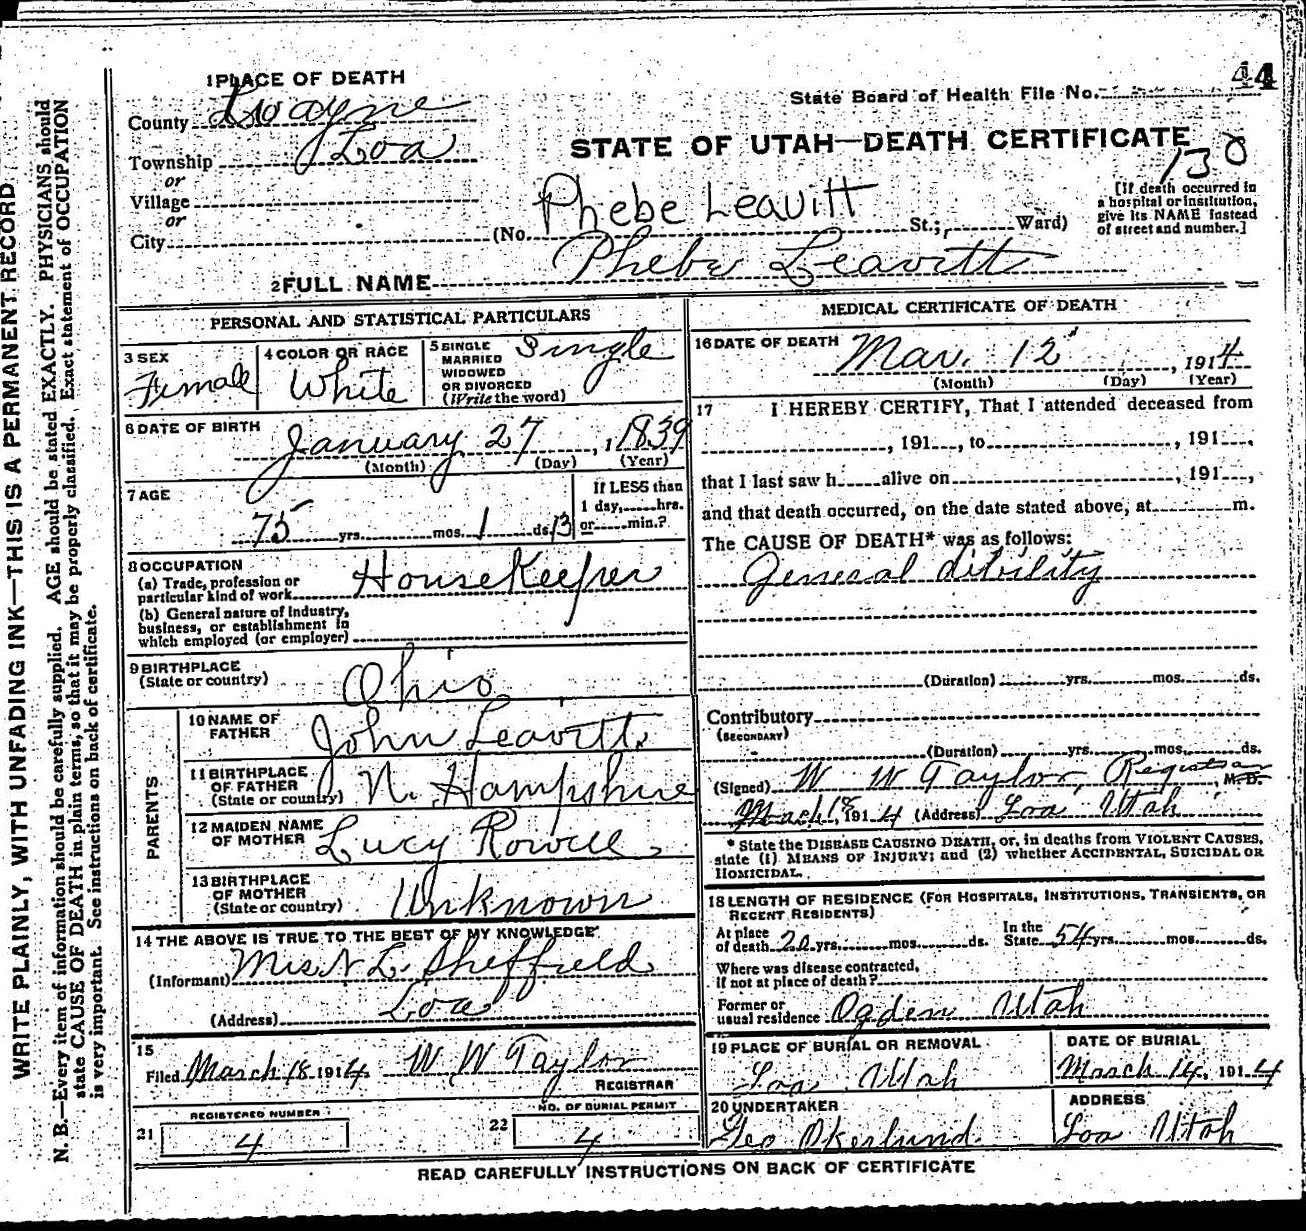 WRITE PLAINLY, WITH UNFADING INK—THIS IS A PERMANENT RECORD
N. B.—Every item of information should be carefully supplied. AGE should be stated EXACTLY. PHYSICIANS should
state CAUSE OF DEATH in plain terms, so that it may be properly classified. Exact statement of OCCUPATION
is very important. See instructions on back of certificate.
44
1 PLACE OF DEATH
State Board of Health File No.
County Wayne
STATE OF UTAH—DEATH CERTIFICATE
130
Township Loa
or
Village
or
City
[If death occurred in
a hospital or institution,
give its NAME instead
of street and number.]
Phebe Leavitt
(No. St.; Ward)
2 FULL NAME Phebe Leavitt
PERSONAL AND STATISTICAL PARTICULARS
3 SEX
Female
4 COLOR OR RACE
White
5 SINGLE
MARRIED
WIDOWED
OR DIVORCED
(Write the word)
Single
6 DATE OF BIRTH
January 27, 1839
(Month) (Day) (Year)
7 AGE
75 yrs. mos. 1 ds. 13
If LESS than
1 day, hrs.
or min.?
8 OCCUPATION
(a) Trade, profession or
particular kind of work HouseKeeper
(b) General nature of industry,
business, or establishment in
which employed (or employer)
9 BIRTHPLACE
(State or country)
Ohio
PARENTS
10 NAME OF
FATHER
John Leavitt
11 BIRTHPLACE
OF FATHER
(State or country)
N. Hampshire
12 MAIDEN NAME
OF MOTHER
Lucy Rowell
13 BIRTHPLACE
OF MOTHER
(State or country)
Unknown
14 THE ABOVE IS TRUE TO THE BEST OF MY KNOWLEDGE
(Informant) Mrs N L. Sheffield
(Address) Loa
15
Filed March 18 1914. W W Taylor
REGISTRAR
REGISTERED NUMBER
21 4
NO. OF BURIAL PERMIT
22 4
MEDICAL CERTIFICATE OF DEATH
16 DATE OF DEATH
Mar. 12, 1914
(Month) (Day) (Year)
17 I HEREBY CERTIFY, That I attended deceased from
, 191 , to , 191 ,
that I last saw h alive on , 191 ,
and that death occurred, on the date stated above, at m.
The CAUSE OF DEATH* was as follows:
General dibility
(Duration) yrs. mos. ds.
Contributory
(SECONDARY)
(Duration) yrs. mos. ds.
(Signed) W W Taylor, Registrar, M. D.
March 18, 1914 (Address) Loa Utah
* State the DISEASE CAUSING DEATH, or, in deaths from VIOLENT CAUSES,
state (1) MEANS OF INJURY; and (2) whether ACCIDENTAL, SUICIDAL OR
HOMICIDAL.
18 LENGTH OF RESIDENCE (FOR HOSPITALS, INSTITUTIONS, TRANSIENTS, OR
RECENT RESIDENTS)
At place
of death 20 yrs. mos. ds.
In the
State 54 yrs. mos. ds.
Where was disease contracted,
if not at place of death?
Former or
usual residence Ogden Utah
19 PLACE OF BURIAL OR REMOVAL
Loa Utah
DATE OF BURIAL
March 14, 1914
20 UNDERTAKER
Geo Okerlund
ADDRESS
Loa Utah
READ CAREFULLY INSTRUCTIONS ON BACK OF CERTIFICATE